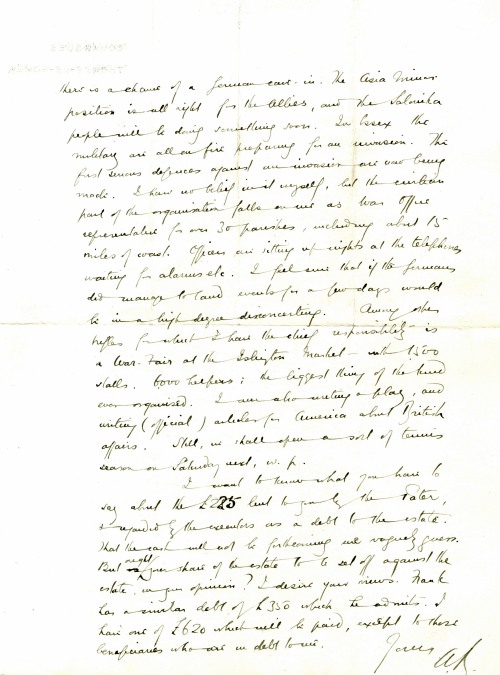 there is a chance of a German cave-in. The Asia Minor
position is all right for the Allies, and the Salonika
people will be doing something soon. In Essex the
military are all on fire preparing for an invasion. The
first serious defences against an invasion are now being
made. I have no belief in it myself, but the civilian
part of the organisation falls on me as War Office
representative for over 30 parishes, including about 15
miles of coast. Officers are sitting up nights at the telephones
waiting for alarms etc. I feel sure that if the Germans
did manage to land events for a few days would
be in a high degree disconcerting. Among other
trifles for which I have the chief responsibility is
a War-Fair at the Islington Market – with 1500
stalls. 6000 helpers; the biggest thing of the kind
ever organised. I am also writing a play, and
writing (official) articles for America about British
affairs. Still, we shall open a sort of tennis
season on Saturday next, w. p.
I want to know what you have to
say about the £225 lent to you by the Pater,
& regarded by the executors as a debt to the estate.
That the cash will not be forthcoming we vaguely guess.
But ought your share of the estate to be set off against the
estate, in your opinion? I desire your views. Frank
has a similar debt of £350 which he admits. I
have one of £620 which will be paid, except to those
beneficiaries who are in debt to me.
Yours